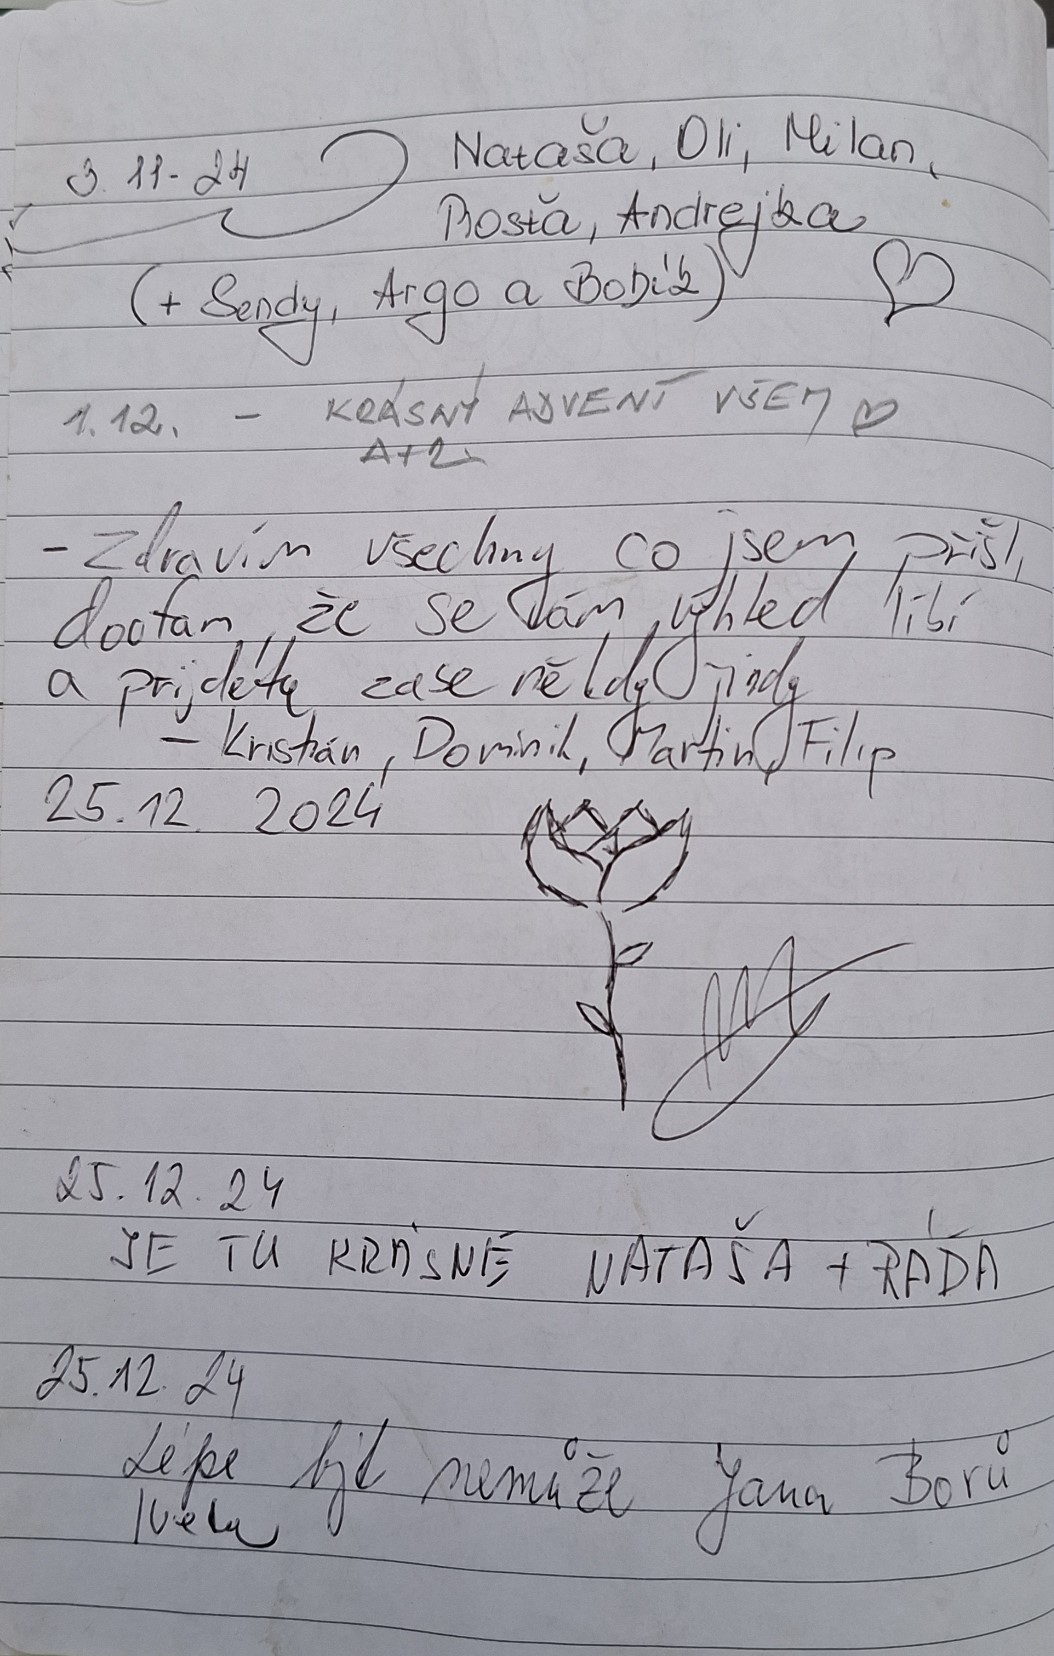 3. 11-24 Nataša, Oli, Milan,
Rosťa, Andrejka
(+ Sendy, Argo a Bobík)
1.12. - KRÁSNÝ ADVENT VŠEM
- Zdravím všechny co jsem přišl,
doofám, že se Vám výhled líbí
a přijdete zase někdy jindy
- Kristián, Dominik, Martin, Filip
25.12. 2024
25.12.24
JE TU KRÁSNĚ NATAŠA + RÁĎA
25.12.24
Lépe být nemůže Jana Borů
Iveta